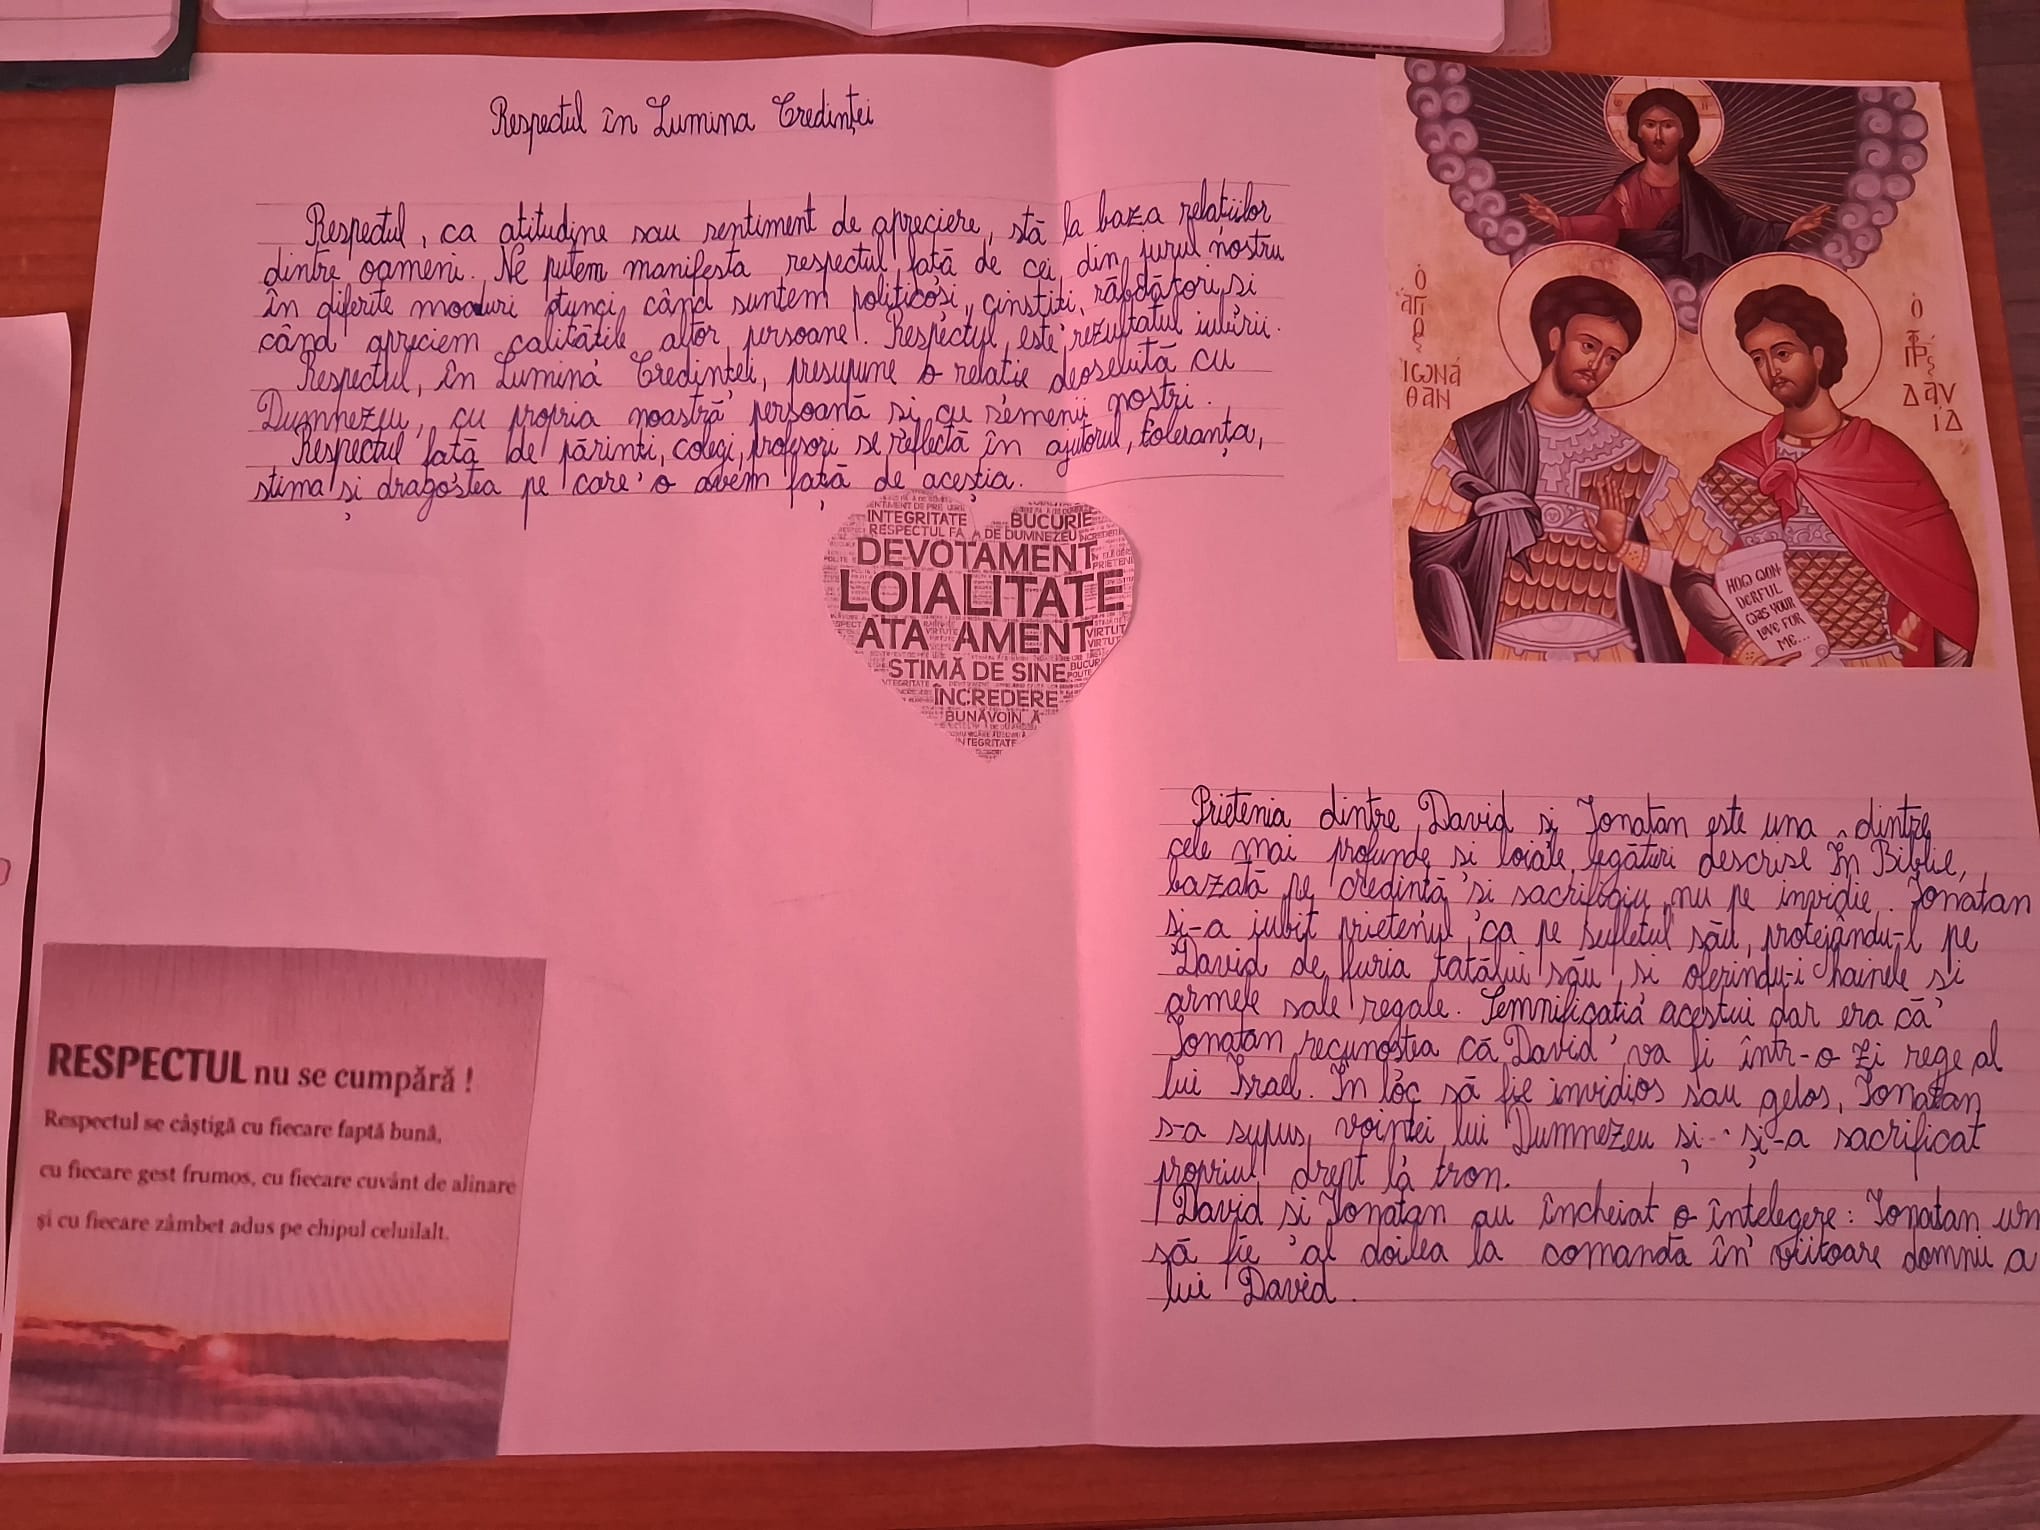 Respectul în Lumina Credinței
Respectul, ca atitudine sau sentiment de apreciere, stă la baza relațiilor
dintre oameni. Ne putem manifesta respectul față de cei din jurul nostru
în diferite moduri atunci când suntem politicoși, cinstiți, răbdători și
când apreciem calitățile altor persoane. Respectul este rezultatul iubirii.
Respectul, în Lumina Credinței, presupune o relație deoselută cu
Dumnezeu, cu propria noastră persoană și cu semenii noștri.
Respectul față de părinți, colegi, profesori se reflectă în ajutorul, toleranța,
stima și dragostea pe care o avem față de aceștia.
INTEGRITATE BUCURIE
RESPECTUL FA A DE DUMNEZEU
DEVOTAMENT
LOIALITATE
ATA AMENT
STIMĂ DE SINE
ÎNCREDERE
BUNĂVOIN Ă
INTEGRITATE
Ὁ ἍΓΙΟΣ
ΙΩΝΑ
ΘΑΝ
Ὁ ΠΡ
ΔΑΥ
ΙΔ
HOW WON
DERFUL
WAS YOUR
LOVE FOR
ME...
Prietenia dintre David și Ionatan este una dintre
cele mai profunde și loiale legături descrise în Biblie,
bazată pe credință și sacrificiu, nu pe invidie. Ionatan
și-a iubit prietenul ca pe sufletul său, protejându-l pe
David de furia tatălui său și oferindu-i hainele și
armele sale regale. Semnificația acestui dar era că
Ionatan recunoștea că David va fi într-o zi rege al
lui Israel. În loc să fie invidios sau gelos, Ionatan
s-a supus voinței lui Dumnezeu și și-a sacrificat
propriul drept la tron.
David și Ionatan au încheiat o înțelegere: Ionatan urm
să fie al doilea la comandă în viitoare domnii a
lui David.
RESPECTUL nu se cumpără !
Respectul se câștigă cu fiecare faptă bună,
cu fiecare gest frumos, cu fiecare cuvânt de alinare
și cu fiecare zâmbet adus pe chipul celuilalt.